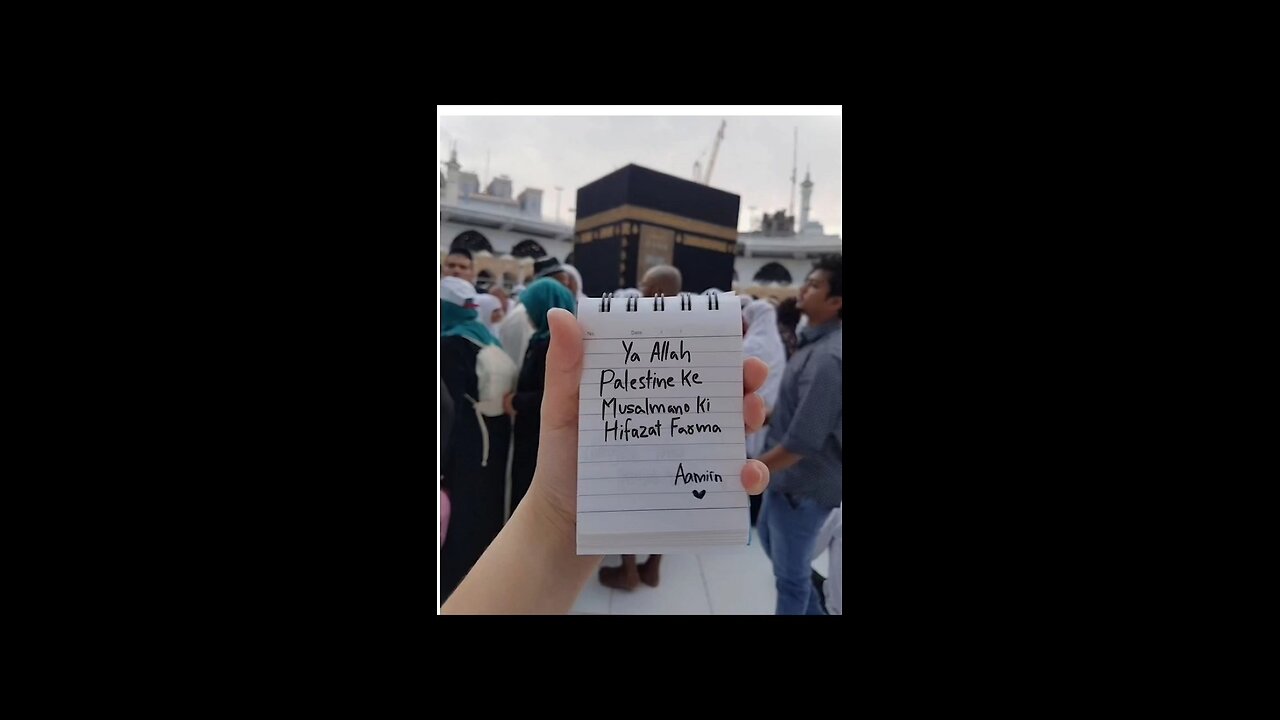 No. Date
Ya Allah
Palestine Ke
Musalmano Ki
Hifazat Farma
Aamiin